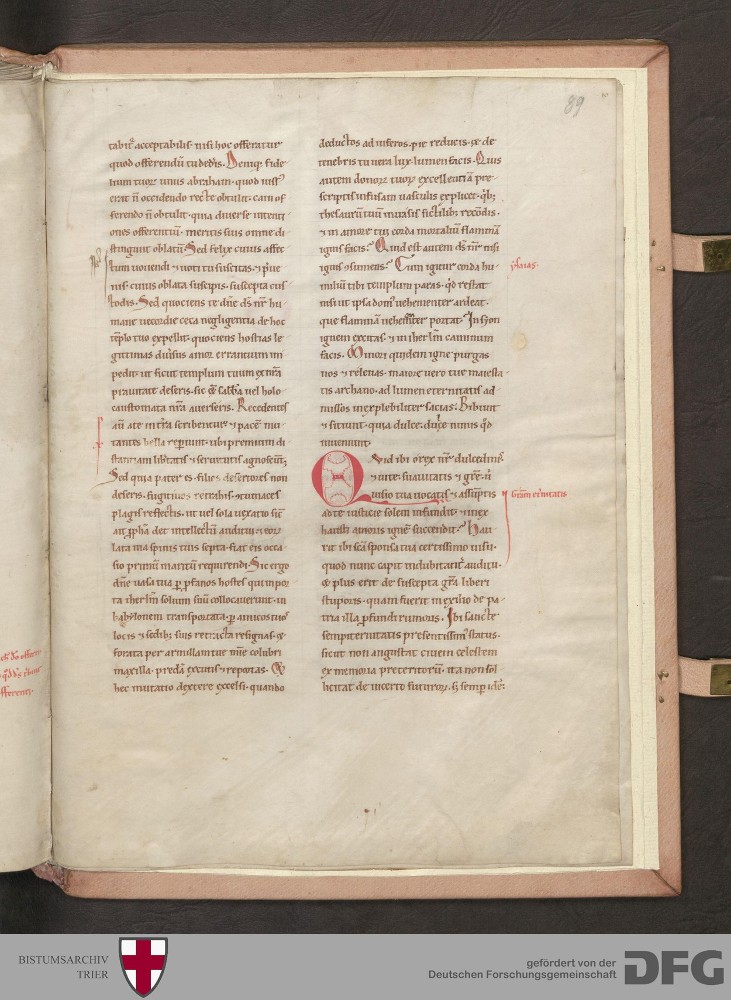 89
tabit᷑ acceptabilis. nisi hoc offeratur
quod offerendū tu dedis. Deniq; fide
lium tuoꝝ unius abraham. quod
erat n̄ occidendo recte obtulit. cain of
ferendo n̄ obtulit. quia diuerse intenti
ones offerentiū. meritis suis omne di
stingunt oblatū. Sed felix cuius affec
tum uouendi ⁊ uoti tu suscitas. ⁊
cuius oblata suscipis. suscepta cus
todis. Sed quociens te dn̄e ds̄ nr̄ hu
mane uecordie ceca negligentia de hoc
tēplo tuo expellit. quociens hostias le
gitimas diūsus amor errantium im
pedit. ut sicut templum tuum ex nr̄a
prauitate deseris. sic ⁊ uel holo
caustomata nr̄a auerseris. Recedentes
aū a te in tr̄a scribentur ⁊ pacē mu
tantes bella repiunt. ubi premium di
stantiam lib̄tatis ⁊ seruitutis agnoscūt;
Sed quia pater es. filios desertores non
deseris. fugitiuos retrahis. ⁊tumaces
plagis reflectis. ut uel sola uexatio sic̄
ait ꝓpha det intellectū auditui ⁊
lata uia spinis tuis septa. fiat eis occa
sio primū maritū requirendi. Sic ergo
dn̄e uasa tua ꝑ ꝓfanos hostes qui inpor
ta iherl̄m solium suū collocauerunt. in
babylonem transportata. ꝑ amicos tuos
locis ⁊ sedib; suis retracta resignas. ⁊
forata per armillam tue colubri
maxilla. predā excutis ⁊ reportas. Et
hec mutatio dextere excelsi. quando
deductos ad inferos. pie reducis. ⁊ de
tenebris tu uera lux. lumen facis. Quis
autem donoꝝ tuoꝝ excellentiā pre
scriptis infusam uasculis explicet. qb;
thesaurū tuū in uasis fictilib; recōdis.
⁊ in amore tui corda mortaliū flammā
ignis facis? Quid est autem ds̄ nr̄ nisi
ignis ⁊sumens? Cum igitur corda hu
miliū tibi templum paras. qd restat
nisi ut ipsa domꝰ uehementer ardeat.
que flammā uehementer portat. In syon
ignem excitas. ⁊ in iherl̄m caminum
facis. Minori quidem igne purgas
nos ⁊ releuas. maiore uero tue maiesta
tis archano. ad lumen eternitatis ad
missos inexplebiliter sacias. Bibunt
⁊ sitiunt. quia dulce. nimis qd
inueniunt.
Quid ibi o rex nr̄ dulcedinis
⁊ uite. suauitatis ⁊ gr̄e.
uisio tua uocatis ⁊ assūptis
a te iusticie solem infundit. ⁊ inex
hausti amoris ignē succendit? Hau
rit ibi sc̄a sponsa tua certissimo uisu.
quod nunc capit indubitant᷑ auditu.
⁊ plus erit de suscepta gr̄a liberi
stuporis. quam fuerit in exilio de pa
tria illa ꝓfundi rumoris. Ibi sancte
sempiternitatis presentissimꝰ status.
sicut non angustat ciuem celestem
ex memoria preteritorū. ita non sol
licitat de incerto futuroꝝ. sꝫ semp
ysaias.
BISTUMSARCHIV
TRIER
gefördert von der
Deutschen Forschungsgemeinschaft
DFG